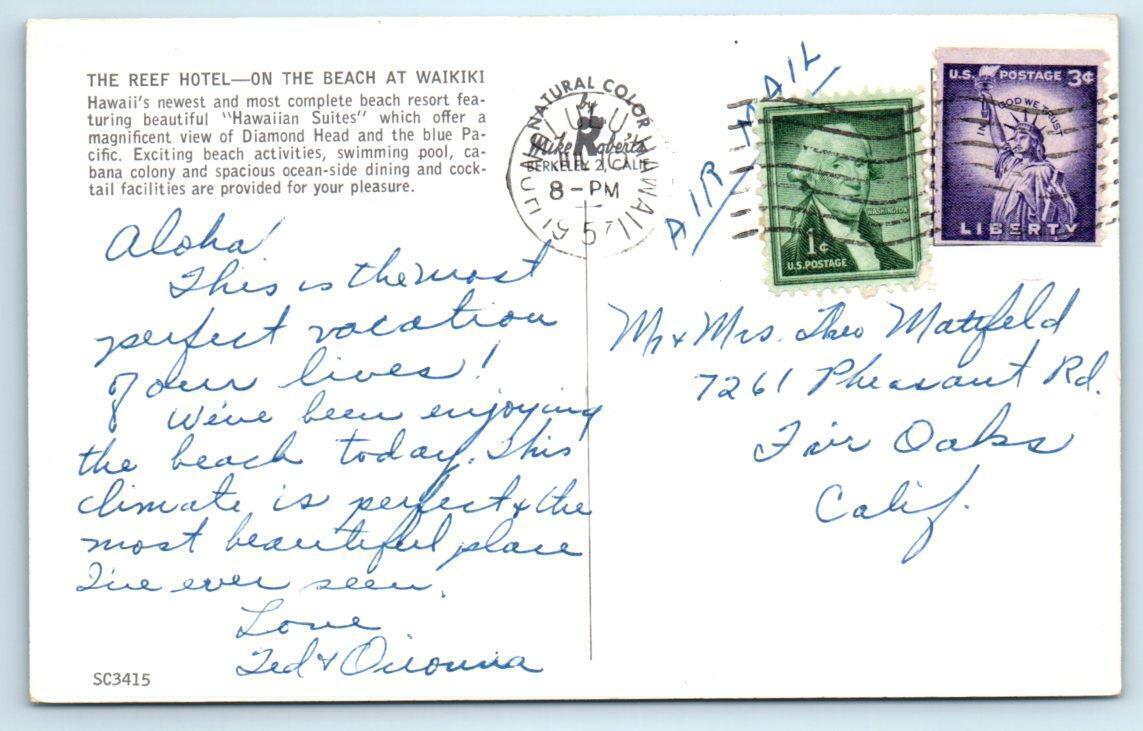 THE REEF HOTEL—ON THE BEACH AT WAIKIKI
Hawaii's newest and most complete beach resort fea-
turing beautiful "Hawaiian Suites" which offer a
magnificent view of Diamond Head and the blue Pa-
cific. Exciting beach activities, swimming pool, ca-
bana colony and spacious ocean-side dining and cock-
tail facilities are provided for your pleasure.
Aloha!
This is the most
perfect vacation
of our lives!
We've been enjoying
the beach today. This
climate is perfect & the
most beautiful place
I've ever seen.
Love
Ted &
SC3415
NATURAL COLOR
by
Mike Roberts
BERKELEY 2, CALIF
8-PM
1957
HAWAII
AIR MAIL
WASHINGTON
1¢
U.S. POSTAGE
U.S. POSTAGE 3¢
IN GOD WE TRUST
LIBERTY
Mr & Mrs. Theo Matzfeld
7261 Pheasant Rd.
Fair Oaks
Calif.